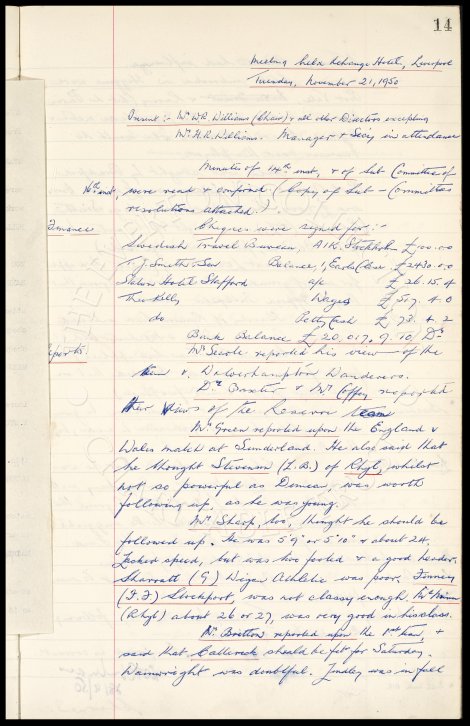 14
Meeting held Exchange Hotel, Liverpool
Tuesday, November 21, 1950
Present :- Mr W.R. Williams (Chair) & all other Directors excepting
Mr H.R. Williams. Manager & Secy in attendance
Minutes of 14th inst, & of Sub Committee of
16th inst, were read & confirmed (Copy of Sub-Committees
resolutions attached.)
Finance Cheques were signed for :-
Swedish Travel Bureau, A.I.K. Stockholm £100.00
T.J. Smith & Son Balance, Close £2430.0.0
Hotel Stafford a/c £26.15.4
Theo Kelly, Wages £507.4.0
do Petty Cash £73.4.2
Bank Balance £20,017.9.10 Dr
Reports. Mr Searle reported his view of the
team v. Wolverhampton Wanderers.
Dr Baxter & Mr Coffey reported
their views of the Reserve team
Mr Green reported upon the England v
Wales match at Sunderland. He also said that
he thought Stevenson (L.B.) of Rhyl, whilst
not so powerful as was worth
following up, as he was young.
Mr Sharp, too, thought he should be
followed up. He was 5'9" or 5'10" & about 24.
Lacked speed, but was two footed & a good header.
Sharratt (G) Wigan Athletic was poor, Finney
(I.F) Stockport, was not classy enough.
(Rhyl) about 26 or 27, was very good in his class.
Mr Britton reported upon the 1st team, &
said that Catterick should be fit for Saturday.
Wainwright was doubtful. Lindley was in full